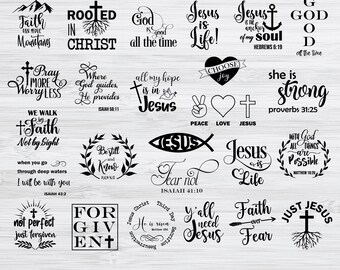 Faith
can move
Mountains
ROOTED
IN
CHRIST
God
is good
all the time
Jesus
is Life!
Jesus
is the
anchor
of my
soul
HEBREWS 6:19
GOD
GOD
all the time
Pray
MORE
Worry
LESS
Where
GOD
guides
He
provides
ISAIAH 58:11
all my hope
is in
Jesus
CHOOSE
Joy
PEACE LOVE JESUS
she is
strong
proverbs 31:25
WE WALK
by
Faith
Not by Sight
when you go
through deep waters
I will be with you
ISAIAH 43:2
Be still
and
Know
JESUS
Fear not
ISAIAH 41:10
Jesus
is
Life
WITH GOD
ALL
THINGS ARE
Possible
MATTHEW 19:26
not perfect
just forgiven
FOR
GIV
EN
Jesus Christ
He is risen
y'all
need
Jesus
Faith
over
Fear
JUST JESUS